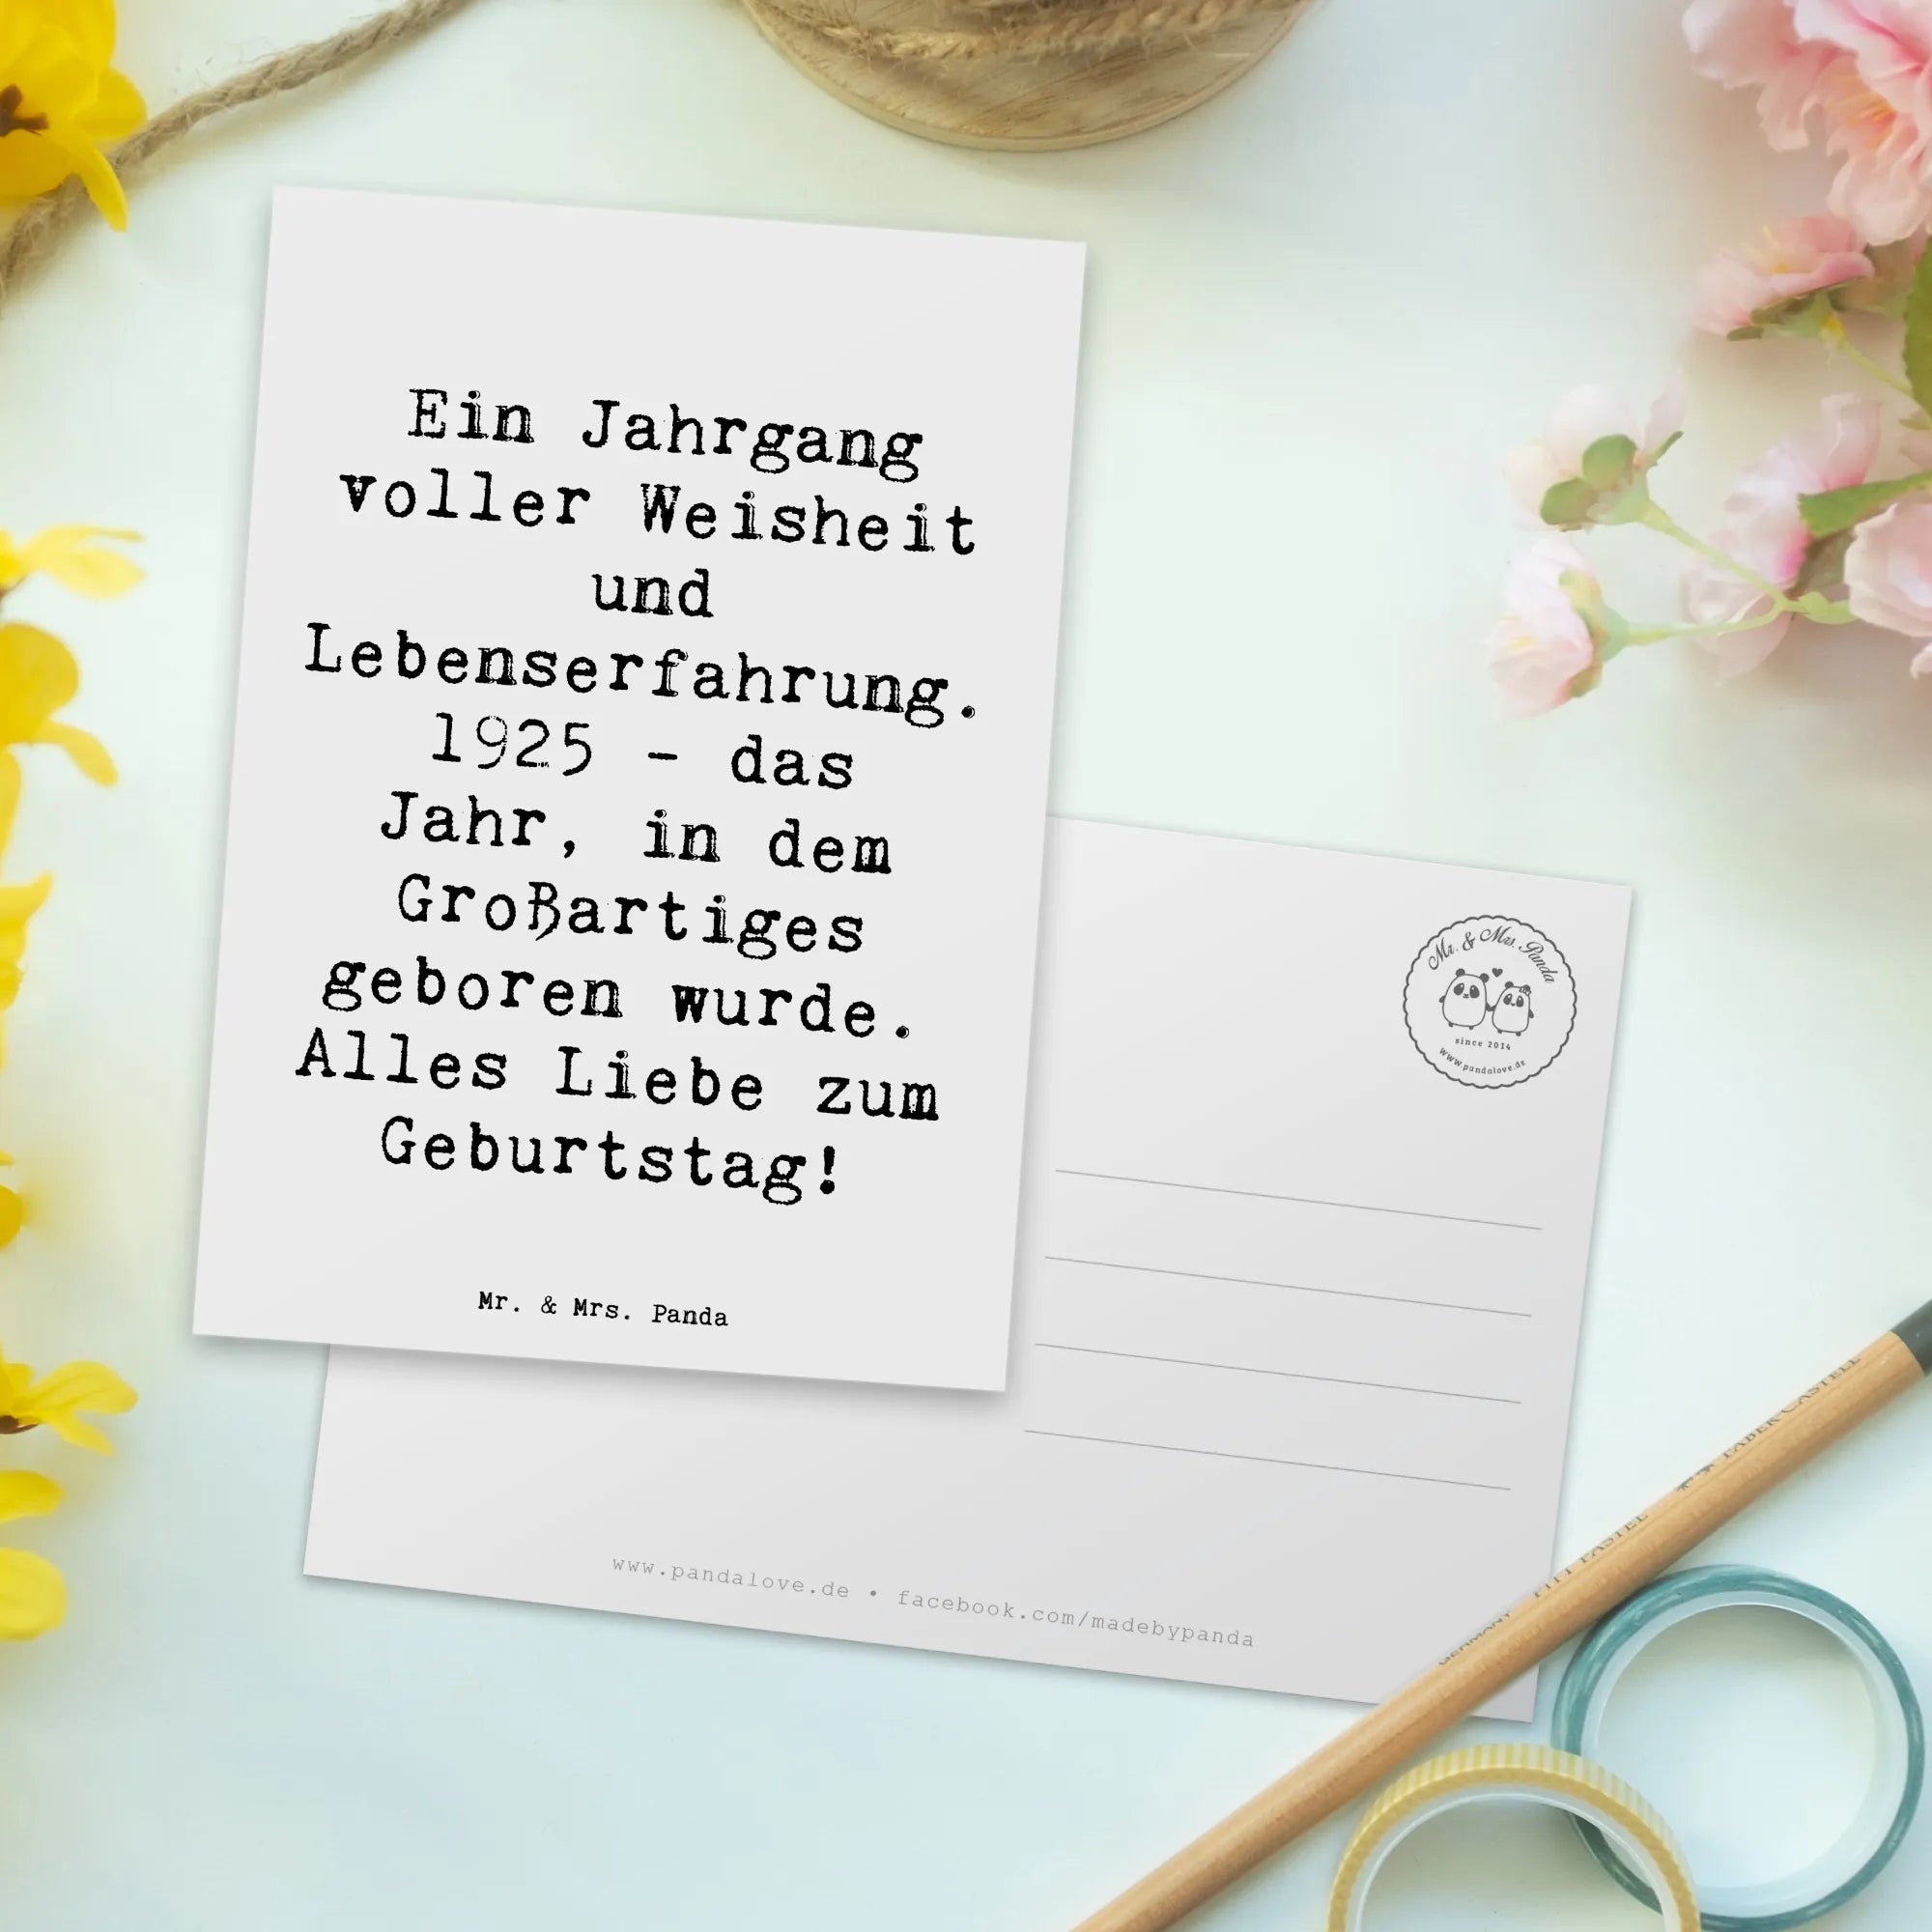 Ein Jahrgang
voller Weisheit
und
Lebenserfahrung.
1925 - das
Jahr, in dem
Großartiges
geboren wurde.
Alles Liebe zum
Geburtstag!
Mr. & Mrs. Panda
Mr. & Mrs. Panda
since 2014
www.pandalove.de
www.pandalove.de • facebook.com/madebypanda
GERMANY PITT PASTEL FABER-CASTELL